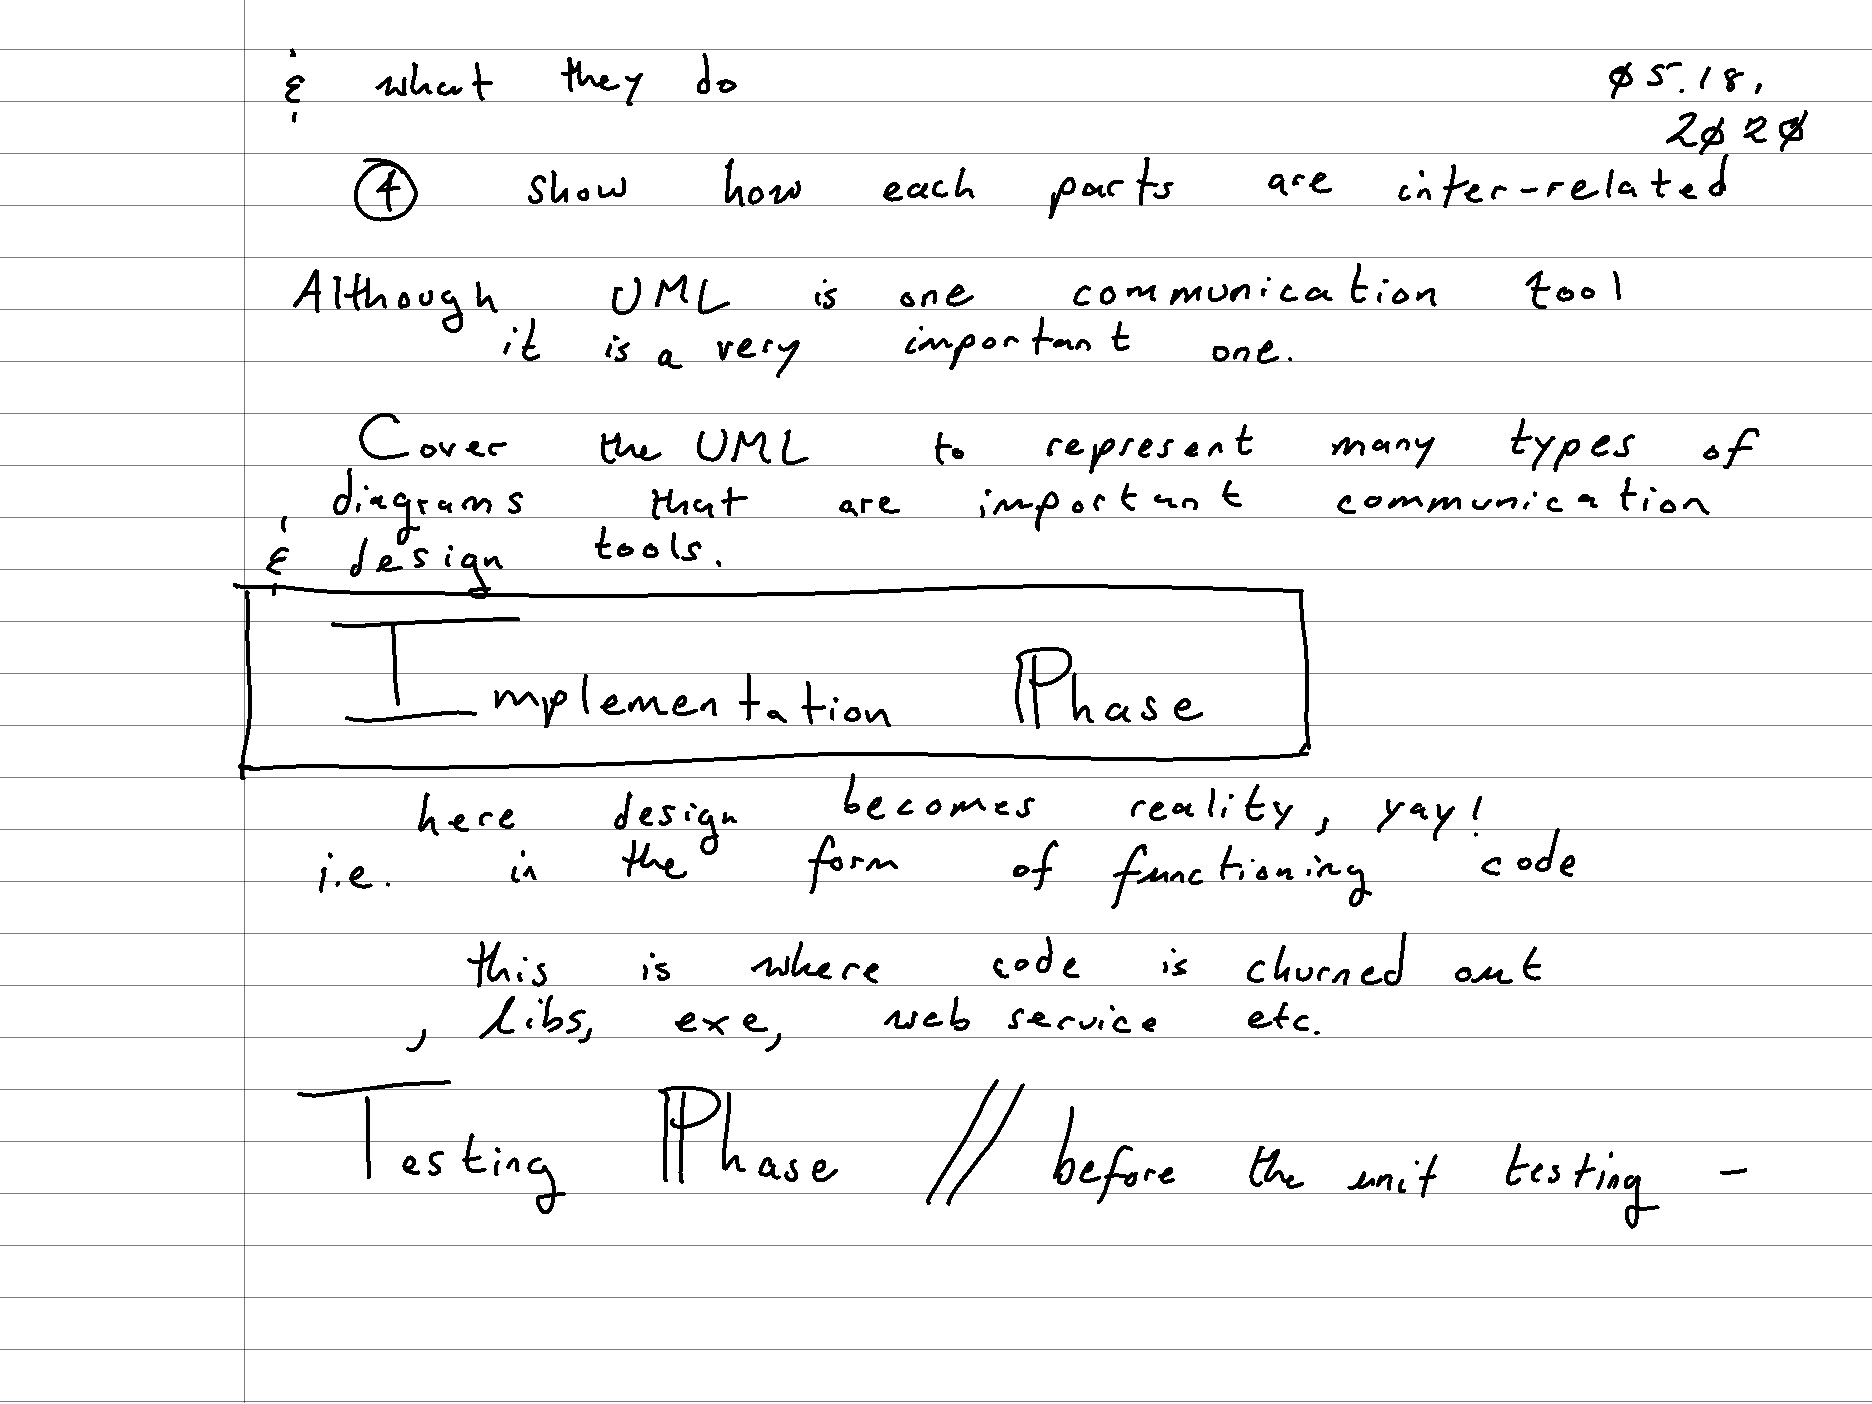 & what they do
05.18,
2020
④ show how each parts are inter-related
Although UML is one communication tool
it is a very important one.
Cover the UML to represent many types of
diagrams that are important communication
& design tools.
Implementation Phase
here design becomes reality, yay!
i.e. in the form of functioning code
this is where code is churned out
, libs, exe, web service etc.
Testing Phase // before the unit testing -